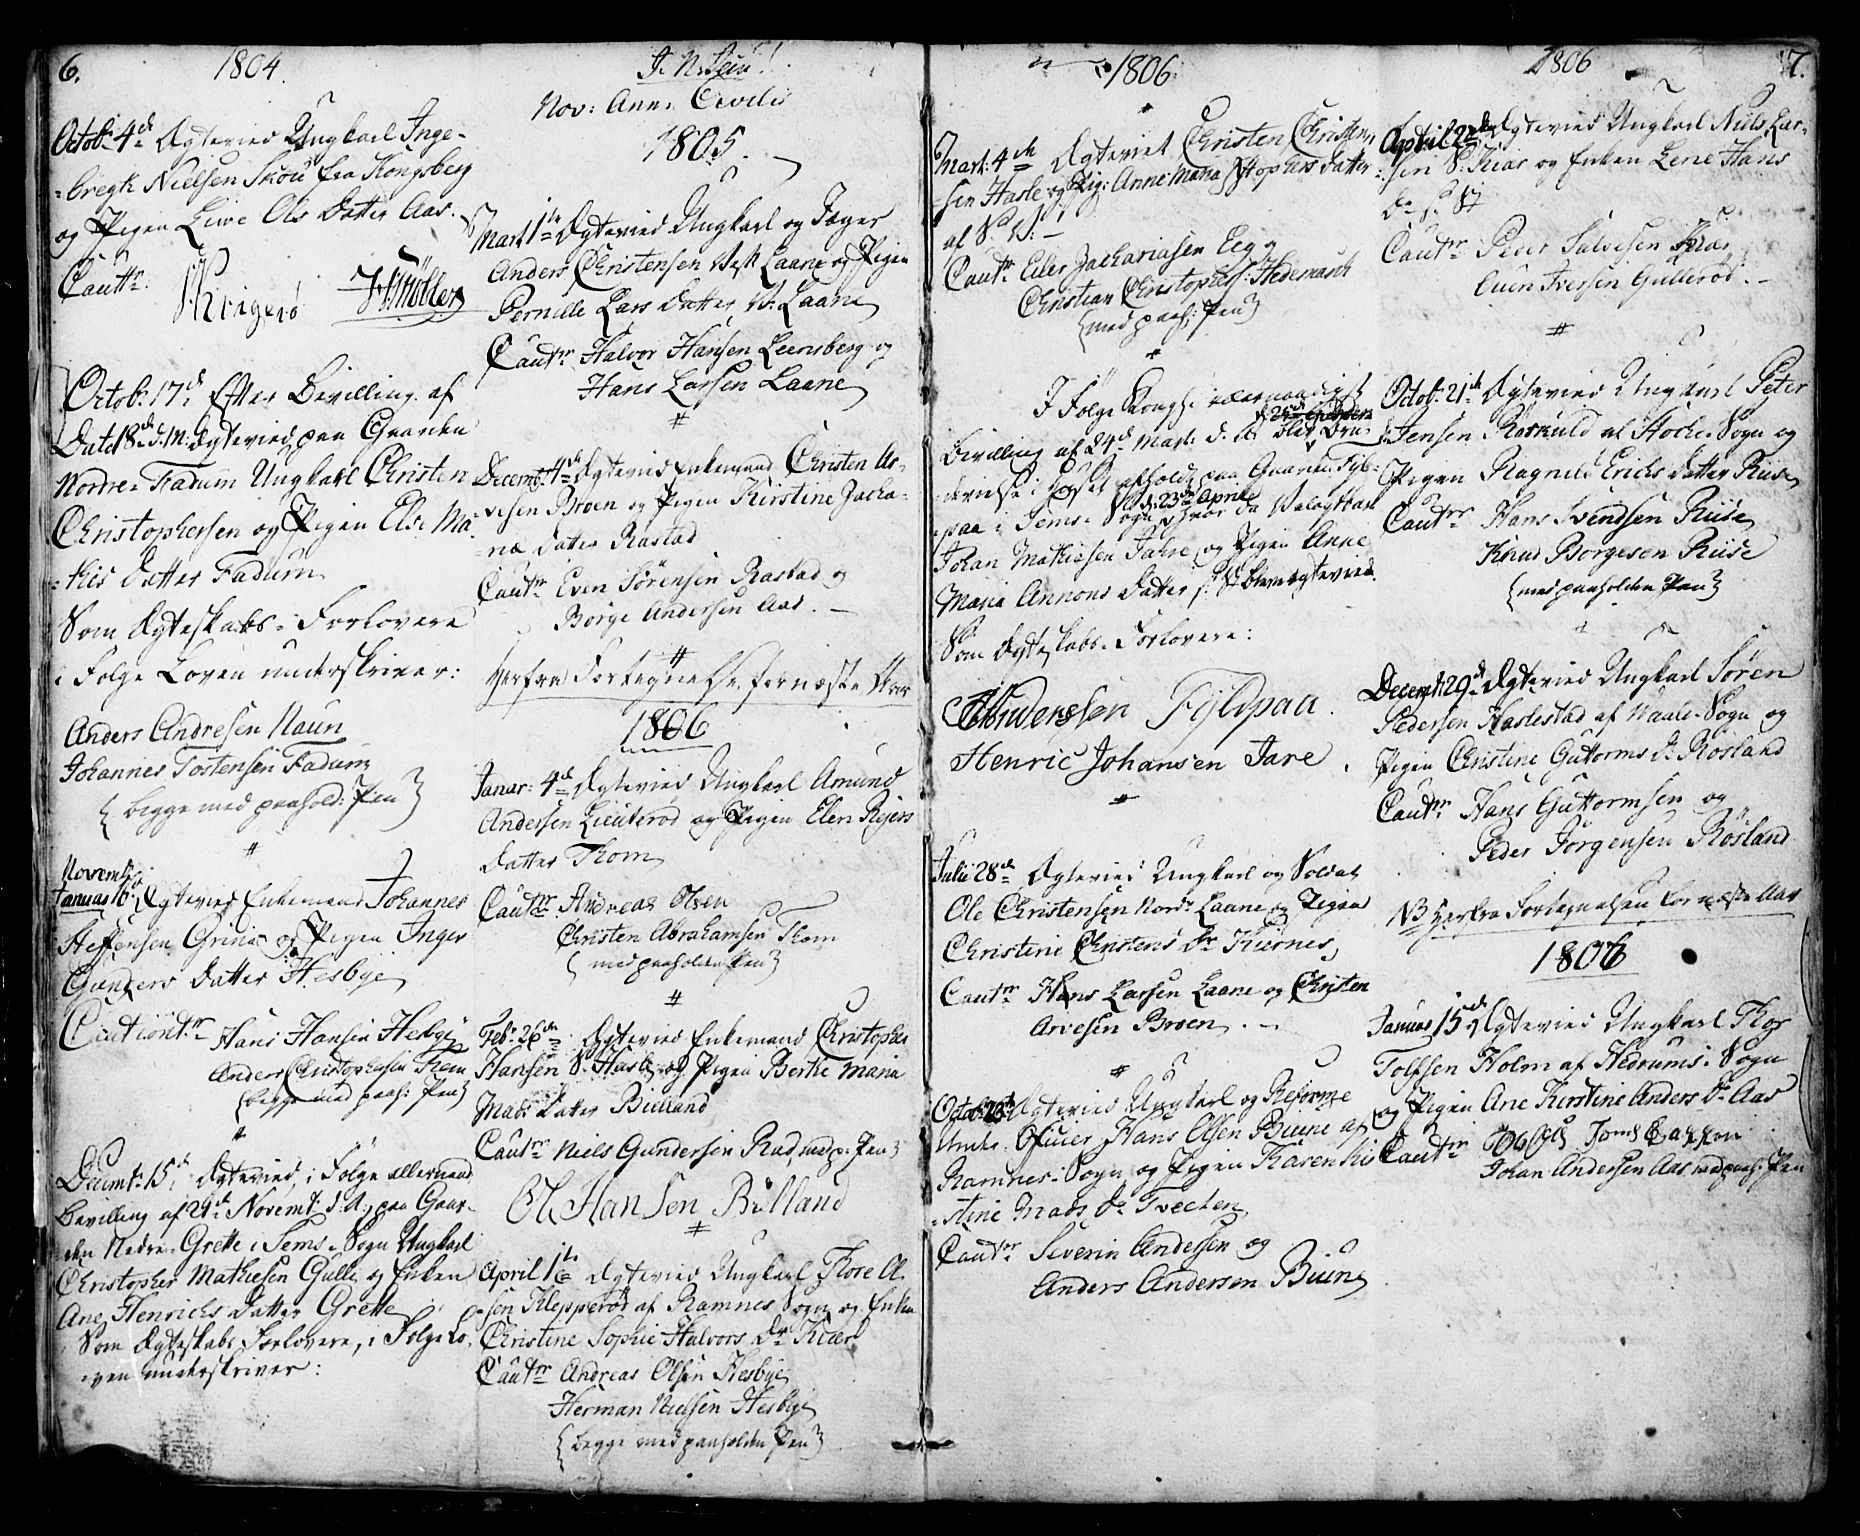 6.
1804.
Octob: 4de Ægteviet Ungkarl Inge-
bregt Nielsen Skou fra Kongsberg
og Pigen Live Ols Datter Aas.
Cautr.
Octob: 17de Efter Bevilling af
Dato 18de d: M: Ægteviet paa Gaarden
Nordre-Fadum Ungkarl Christen
Christophersen og Pigen Else Ma-
this Datter Fadum
Som Ægteskabs-Forlovere
i Følge Loven underskriver:
Anders Andresen Naun
Johannes Tostensen Fadum
{begge med paahold: Pen}
#
Novembr
Januar 16de Ægteviet Enkemand Johannes
Steffensen Grini og Pigen Inger
Gunders Datter Hesbye
Cautiontr Hans Hansen Hesbye
Anders Christophersen Them
{begge med paah: Pen}
#
Decembr: 15de Ægteviet, i Følge allernaad:
Bevilling af 29de Novembr d: A:, paa Gaar-
den Nedre-Grette i Sems-Sogn Ungkarl
Christopher Mathiesen Gulli og Enken
Ane Henrichs Datter Grette
Som Ægteskabs Forlovere, i Følge Lo-
ven underskriver:
J. N. Jesu!
Nov: Ann: Civilis
1805.
Mart: 1te Ægteviet Ungkarl og Jæger
Anders Christensen Vest Laane og Pigen
Pernille Lars Datter V: Laane
Cautr Halvor Hansen Leensberg og
Hans Larsen Laane
#
Decemb: 4de Ægteviet Enkemand Christen Ar-
vesen Broen og Pigen Kirstine Zacha-
riæ Datter Rastad
Cautr Even Sørensen Rastad og
Børge Andersen Aas.
#
Herfra Fortegnelse for næste Aar
1806
Januar: 4de Ægteviet Ungkarl Amund
Andersen Lieuterød og Pigen Elen Rejers
Datter Thom
Cautr Andreas Olsen
Christen Abrahamsen Thom
{med paaholden Pen}
#
Feb: 26de Ægteviet Enkemand Christopher
Hansen S: Hasle og Pigen Berthe Maria
Mads Datter Bielland
Cautr Niels Gundersen Rud, med p: Pen
Ole Hansen Bielland
#
April 1te Ægteviet Ungkarl Thore Ol-
sen Klepperød af Ramnes Sogn og Enken
Christine Sophie Halvors Dr Kiær
Cautr Andreas Olsen Hesbye
Herman Nielsen Hesbye
{begge med paaholden Pen}
1806.
Mart: 4de Ægteviet Christen Christen-
sen Hasle og Pig: Anne Maria Xstophers Datter
Cautr Eiler Zachariasen Eeg og
Christian Christophers: Hedemark
{med paah: Pen}
#
I Følge Kongl: allernaadigst
Bevilling af 24de Mart: d. A. blev Bru-
devielse i Huset afholdt paa Gaarden Fyld-
paa i Sems-Sogn d: 23de April hvor da
Johan Mathiesen Jahre og Pigen Anne
Maria Annons Datter blev ægteviet.
Som Ægteskabs-Forlovere:
Andersen Fyldpaa.
Henric Johansen Jare
#
Julii 28de Ægteviet Ungkarl og Soldat
Ole Christensen Nordr Laane og Pigen
Christine Christens Dr Kiernes
Cautr Hans Larsen Laane og Christen
Arvesen Broen.
#
Octob: 28de Ægteviet Ungkarl og Reforme
Under Officier Hans Olsen Biune af
Ramnes-Sogn og Pigen Karen Kir-
stine Mads Dr Tvecten
Cautr Severin Andersen og
Anders Andersen Biune
1806
7.
April 22de Ægteviet Ungkarl Niels Lar-
sen S: Kiær og Enken Lene Hans
Cautr Peder Salvesen Kiær
Even Iversen Gullerød.
#
Octob: 21de Ægteviet Ungkarl Peter
Jensen Røskuld af Stokke-Sogn og
Pigen Ragnild Erichs Datter Ruse
Cautr Hans Svendsen Riise
Knud Borgesen Riise
{med paaholden Pen}
Decemb: 29de Ægteviet Ungkarl Søren
Pedersen Haslestad af Vaale-Sogn og
Pigen Christine Guttorms Dr Røsland
Cautr Hans Guttormsen og
Peder Jørgensen Røsland
NB Herfra Fortegnelsen for næste Aar
1806
Januar 15de Ægteviet Ungkarl Thor
Tolfsen Holm af Hedrums-Sogn
og Pigen Ane Kirstine Anders Dr Aas
Cautr
Johan Andersen Aas med paah: Pen